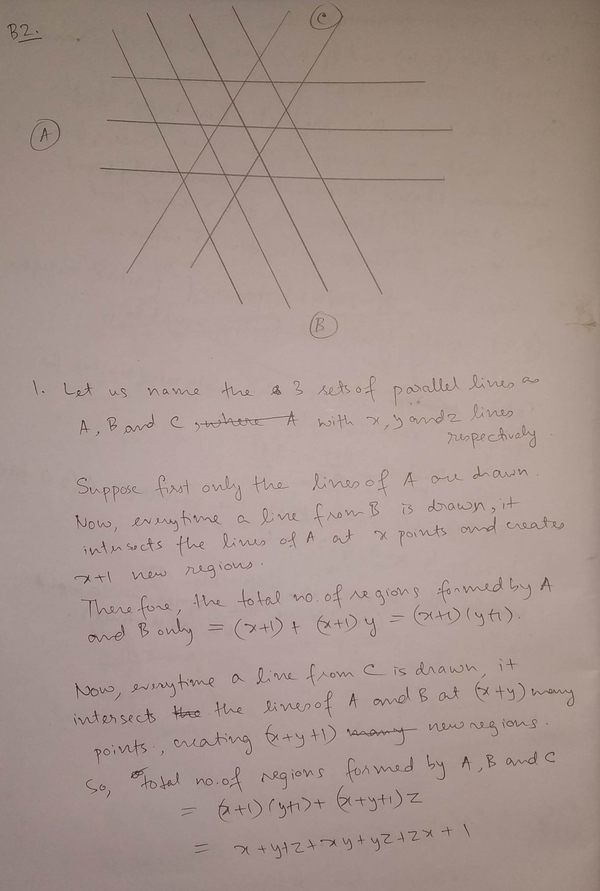 B2.
C
A
B
1. Let us name the 3 sets of parallel lines as
A, B and C, where A with x, y and z lines
respectively.
Suppose first only the lines of A are drawn.
Now, everytime a line from B is drawn, it
intersects the lines of A at x points and creates
x+1 new regions.
Therefore, the total no. of regions formed by A
and B only = (x+1) + (x+1)y = (x+1)(y+1).
Now, everytime a line from C is drawn, it
intersects the the lines of A and B at (x+y) many
points, creating (x+y+1) many new regions.
So, total no. of regions formed by A, B and C
= (x+1)(y+1) + (x+y+1)z
= x+y+z+xy+yz+zx+1